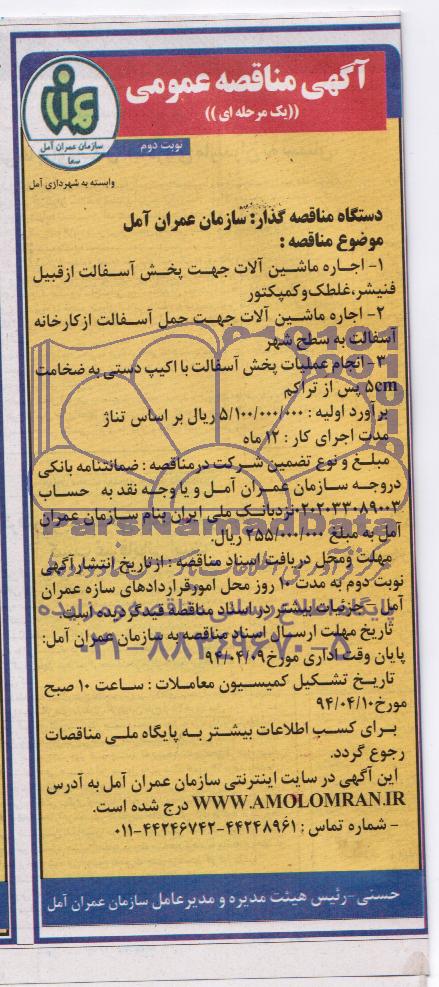 آگهی مناقصه عمومی
((یک مرحله ای))
نوبت دوم
سازمان عمران آمل
سعا
وابسته به شهرداری آمل
دستگاه مناقصه گذار: سازمان عمران آمل
موضوع مناقصه :
۱- اجاره ماشین آلات جهت پخش آسفالت از قبیل
فنیشر،غلطک و کمپکتور
۲- اجاره ماشین آلات جهت حمل آسفالت از کارخانه
آسفالت به سطح شهر
۳- انجام عملیات پخش آسفالت با اکیپ دستی به ضخامت
۵cm پس از تراکم
برآورد اولیه : ۵/۱۰۰/۰۰۰/۰۰۰ ریال بر اساس تناژ
مدت اجرای کار : ۱۲ ماه
مبلغ و نوع تضمین شرکت در مناقصه : ضمانتنامه بانکی
دروجه سازمان عمران آمل و یا وجه نقد به حساب
۰۲۰۲۰۳۳۰۸۹۰۰۳ نزد بانک ملی ایران بنام سازمان عمران
آمل به مبلغ ۲۵۵/۰۰۰/۰۰۰ ریال.
مهلت ومحل دریافت اسناد مناقصه : از تاریخ انتشار آگهی
نوبت دوم به مدت ۱۰ روز محل امور قراردادهای سازه عمران
آمل . جزئیات بیشتر در اسناد مناقصه قید گردیده است.
تاریخ مهلت ارسال اسناد مناقصه به سازمان عمران آمل:
پایان وقت اداری مورخ ۹۴/۰۴/۰۹
تاریخ تشکیل کمیسیون معاملات : ساعت ۱۰ صبح
مورخ ۹۴/۰۴/۱۰
برای کسب اطلاعات بیشتر به پایگاه ملی مناقصات
رجوع گردد.
این آگهی در سایت اینترنتی سازمان عمران آمل به آدرس
WWW.AMOLOMRAN.IR درج شده است.
- شماره تماس : ۴۴۲۴۸۹۶۱-۴۴۲۴۶۷۴۲-۰۱۱
حسنی-رئیس هیئت مدیره و مدیرعامل سازمان عمران آمل
ParsNamadData
۰۲۱-۸۸۳۴۹۶۷۰-۵